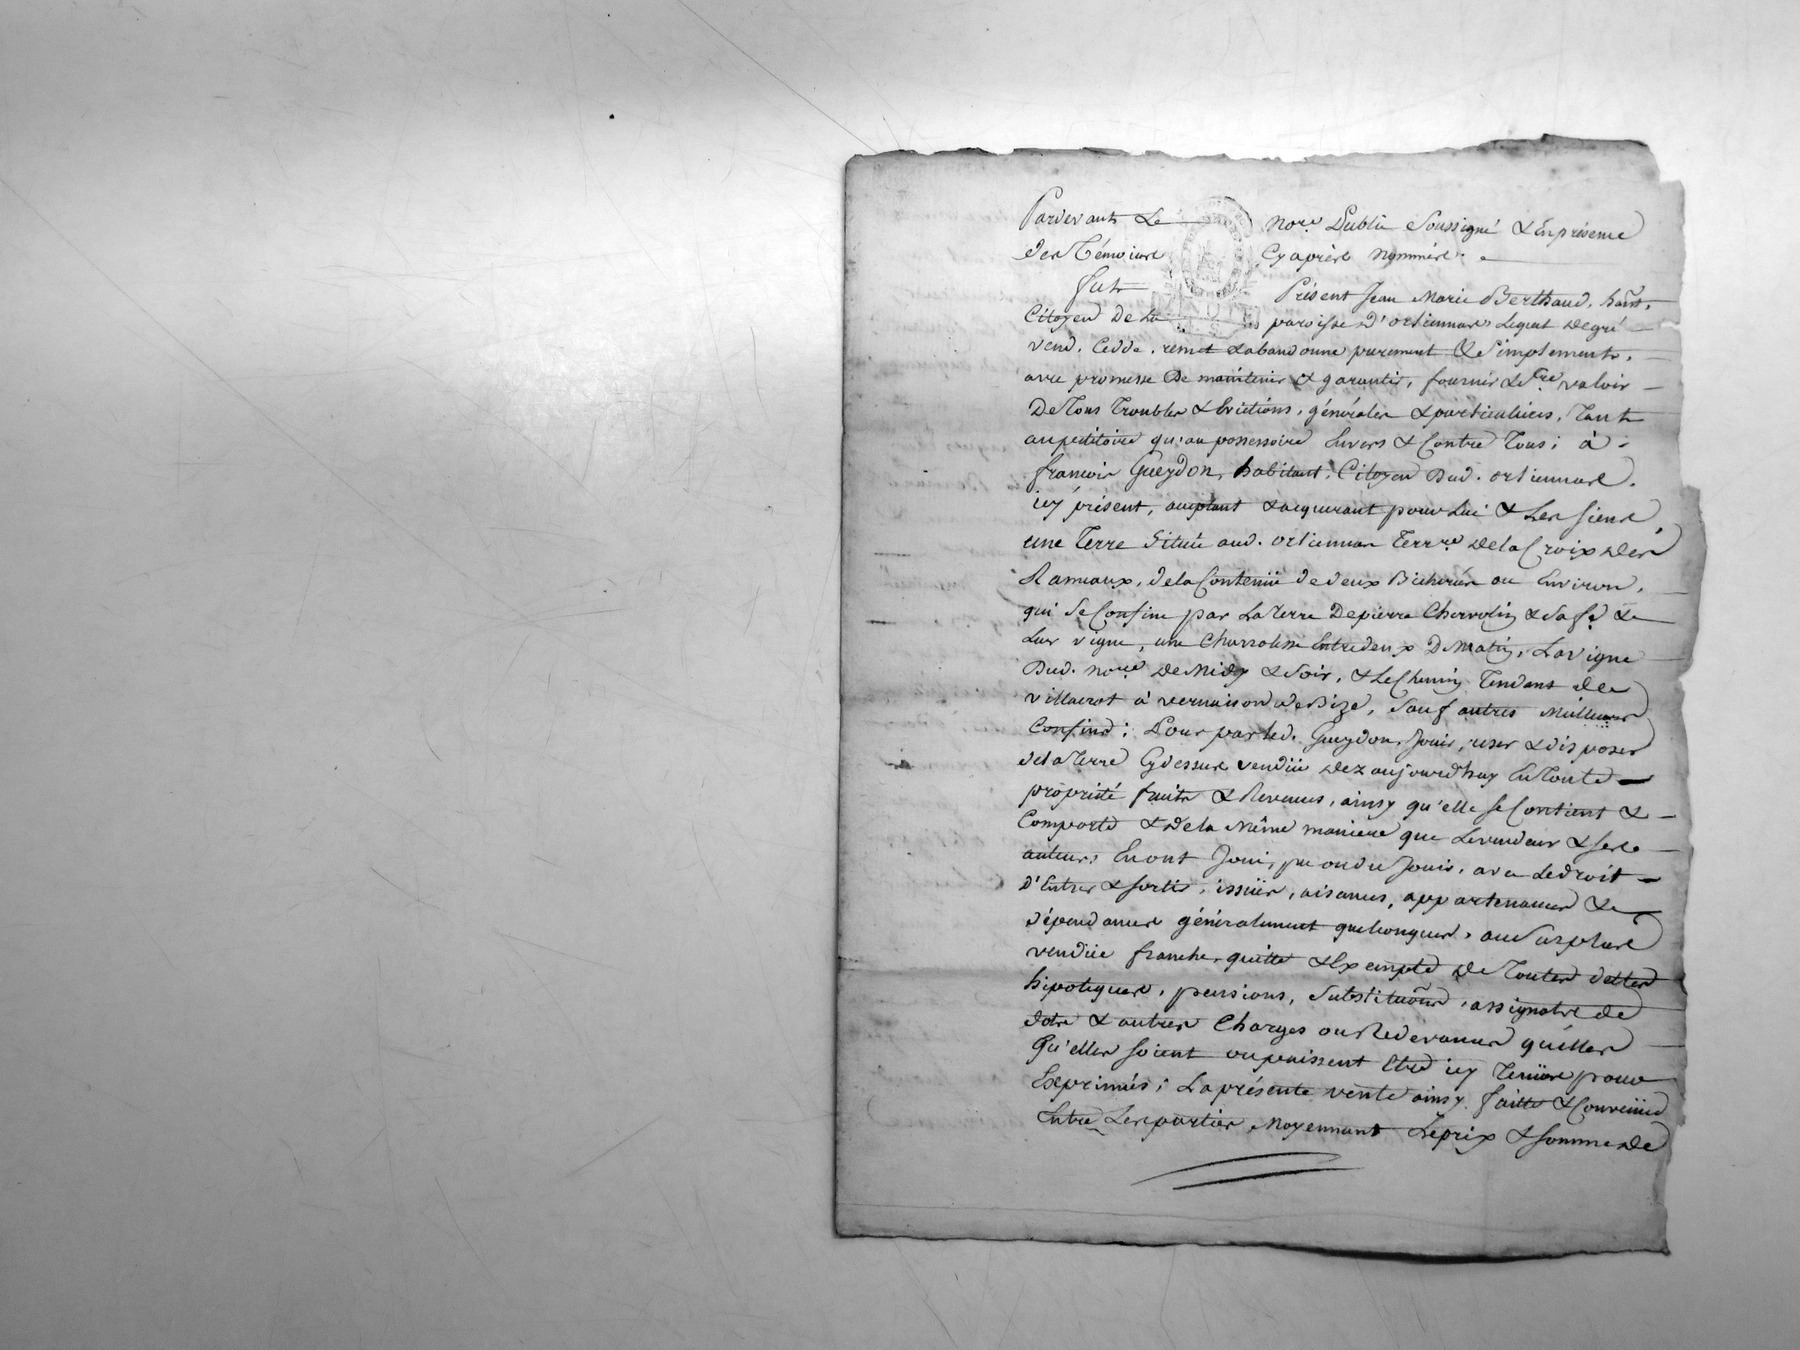 Pardevant Le Nore Public Soussigné & En présence
des Témoins Cy après Nommés.
fut Présent Jean Marie Berthaud, habt,
Citoyen De La paroisse D'orliennas Lequel de gré
vend, Cedde, remet & abandonne purement & Simplement,
avec promesse De maintenir & garantir, fournir & fre valoir
De Tous Troubles & Evictions, générales & particulieres, Tant
au petitoire qu'au possessoire Envers & Contre Tous; à
françois Gueydon, habitant, Citoyen Dud. orliennas,
icy présent, acceptant & acquerant pour Lui & Les siens,
une Terre Située aud. orliennas Terrre de la Croix des
Rameaux, de la Contenüe de deux Bicherées ou Environ,
qui Se Confine par La Terre De pierre Chervolin & Sa fe &
Leur vigne, une Charroliere Entredeux De Matin, La vigne
Dud. Nore de Midy & Soir, & Le Chemin Tendant de
villacrot à vernaison de Bize, Sauf autres Meilleurs
Confins; Pour par led. Gueydon, Jouir, user & disposer
de la Terre Cy dessus vendüe dez aujourdhuy En Toute
propriété fruits & Revenus, ainsy qu'elle se Contient &
Comporte & de la Même maniere que Le vendeur & ses
auteurs En ont Joui, pu ou du Jouir, avec Le droit
D'Entrer & sortir, issües, aisances, appartenances &
dépendances généralement quelconques, au Surplus
vendüe franche, quitte & Exempte de Toutes dettes
hipoteques, pensions, Substituõns, assignats de
dots & autres Charges ou Redevances quelles
Qu'elles soient ou puissent Etre icy Tenües pour
Exprimées; La présente vente ainsy faitte & Convenüe
Entre Les parties Moyennant Le prix & somme de